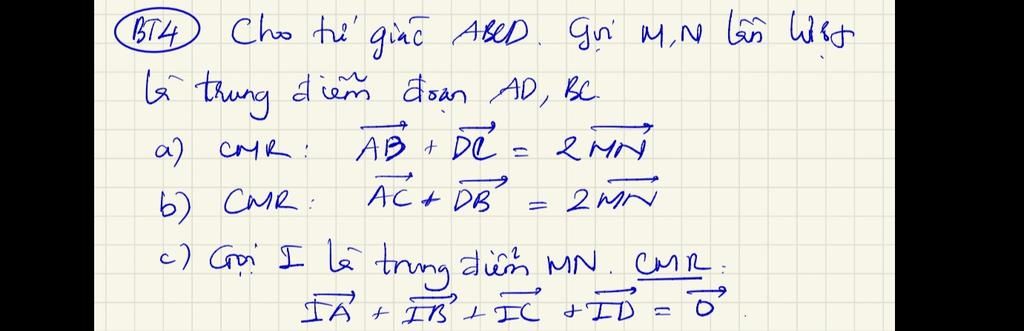 BT4 Cho tứ giác ABCD. Gọi M, N lần lượt
là trung điểm đoạn AD, BC.
a) CMR: $\overrightarrow{AB} + \overrightarrow{DC} = 2\overrightarrow{MN}$
b) CMR: $\overrightarrow{AC} + \overrightarrow{DB} = 2\overrightarrow{MN}$
c) Gọi I là trung điểm MN. CMR:
$\overrightarrow{IA} + \overrightarrow{IB} + \overrightarrow{IC} + \overrightarrow{ID} = \overrightarrow{0}$.